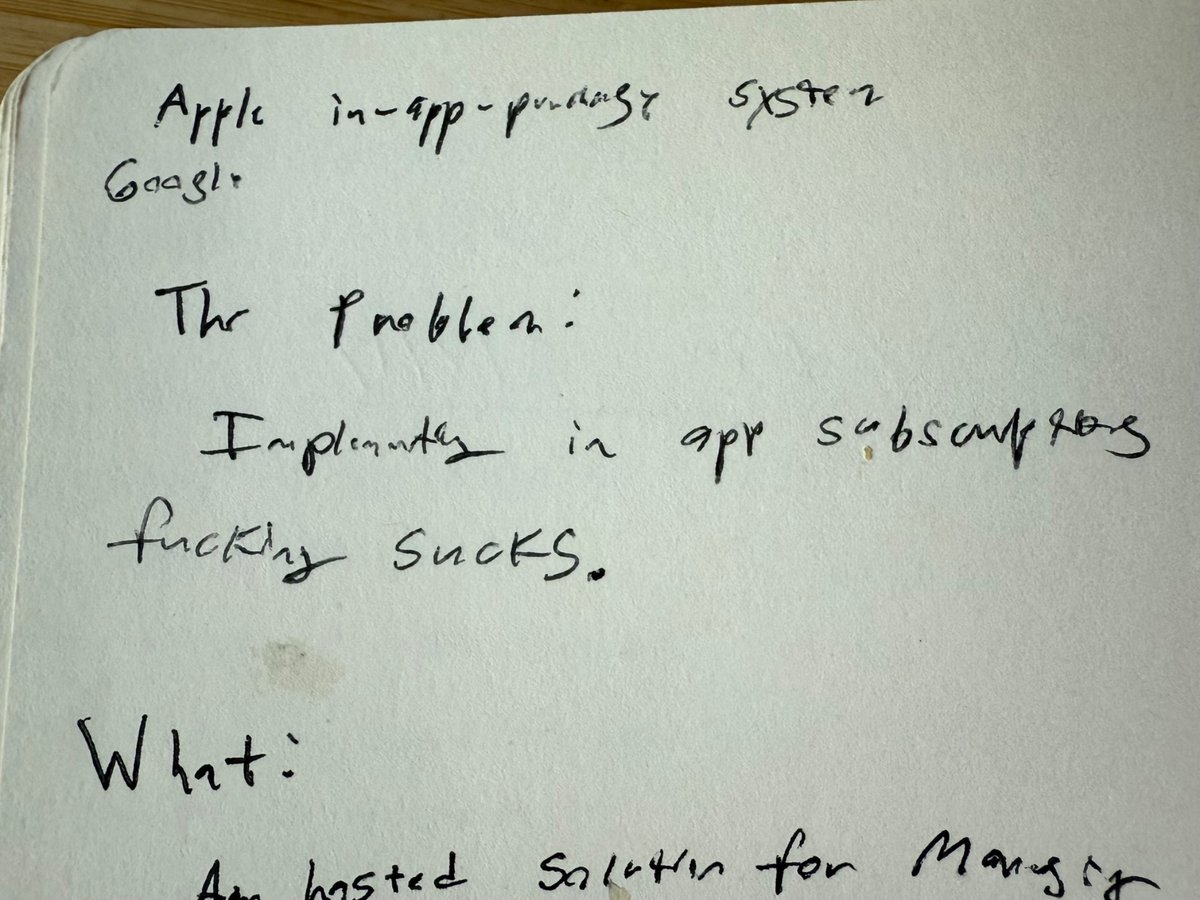 Apple in-app-purchase system
Google
The Problem:
Implementing in app subscriptions
fucking sucks.
What:
hosted solution for Managing